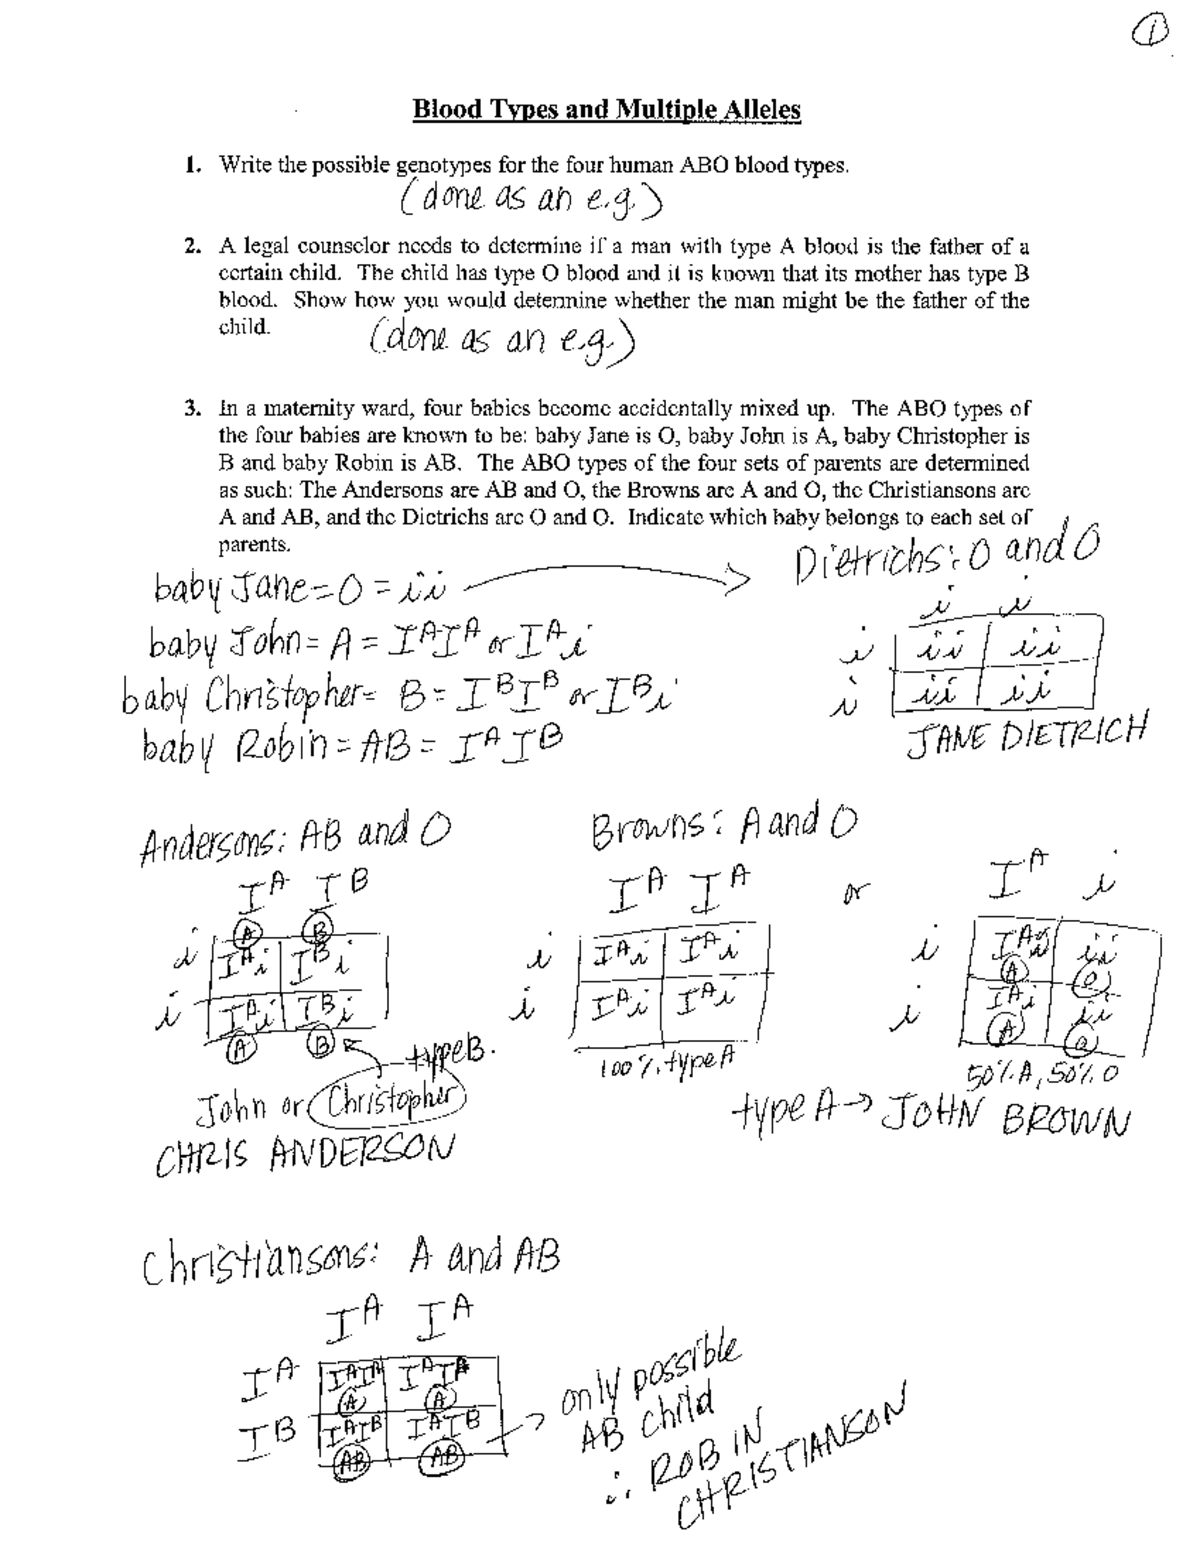 ①
Blood Types and Multiple Alleles
1. Write the possible genotypes for the four human ABO blood types.
(done as an e.g.)
2. A legal counselor needs to determine if a man with type A blood is the father of a
certain child. The child has type O blood and it is known that its mother has type B
blood. Show how you would determine whether the man might be the father of the
child.
(done as an e.g.)
3. In a maternity ward, four babies become accidentally mixed up. The ABO types of
the four babies are known to be: baby Jane is O, baby John is A, baby Christopher is
B and baby Robin is AB. The ABO types of the four sets of parents are determined
as such: The Andersons are AB and O, the Browns are A and O, the Christiansons are
A and AB, and the Dietrichs are O and O. Indicate which baby belongs to each set of
parents.
baby Jane = O = ii
baby John = A = I^A I^A or I^A i
baby Christopher = B = I^B I^B or I^B i
baby Robin = AB = I^A I^B
Dietrichs: O and O
i i
i ii ii
i ii ii
JANE DIETRICH
Andersons: AB and O
I^A I^B
A B
i I^A i I^B i
i I^A i I^B i
A B
type B.
John or Christopher
CHRIS ANDERSON
Browns: A and O
I^A I^A
i I^A i I^A i
i I^A i I^A i
100% type A
or
I^A i
i I^A i ii
A
i I^A i ii
A
50% A, 50% O
type A → JOHN BROWN
Christiansons: A and AB
I^A I^A
I^A I^A I^A I^A I^A
A A
I^B I^A I^B I^A I^B
AB AB
only possible
AB child
∴ ROBIN
CHRISTIANSON